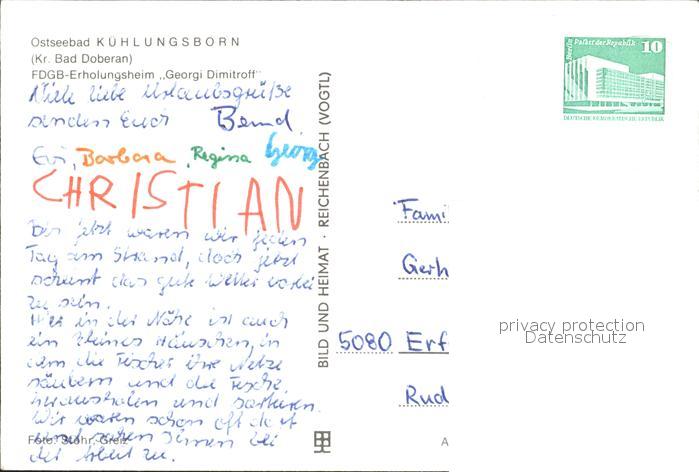 Ostseebad KÜHLUNGSBORN
(Kr. Bad Doberan)
FDGB-Erholungsheim „Georgi Dimitroff"
Viele liebe Urlaubsgrüße
senden Euch Bernd
Evi, Barbara, Regina Georg
CHRISTIAN
Bis jetzt waren wir jeden
Tag am Strand, doch jetzt
scheint das gute Wetter vorbei
zu sein.
Hier in der Nähe ist auch
ein kleines Häuschen, in
dem die Fischer ihre Netze
säubern und die Fische
herausholen und sortieren.
Wir waren schon oft dort
und sahen ihnen bei
der Arbeit zu.
Foto: Stöhr, Greiz
BILD UND HEIMAT · REICHENBACH (VOGTL)
Berlin Palast der Republik 10
DEUTSCHE DEMOKRATISCHE REPUBLIK
Fami
Gerh
5080 Erf
Rud
A
privacy protection
Datenschutz